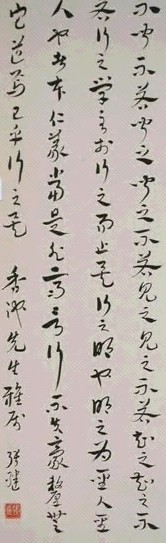 不聞不若聞之聞之不若見之見之不若知之知之不
若行之學至於行之而止矣行之明也明之為聖人聖
人也者本仁義當是非齊言行不失豪釐無
它道焉已乎行之矣 先生雅屬